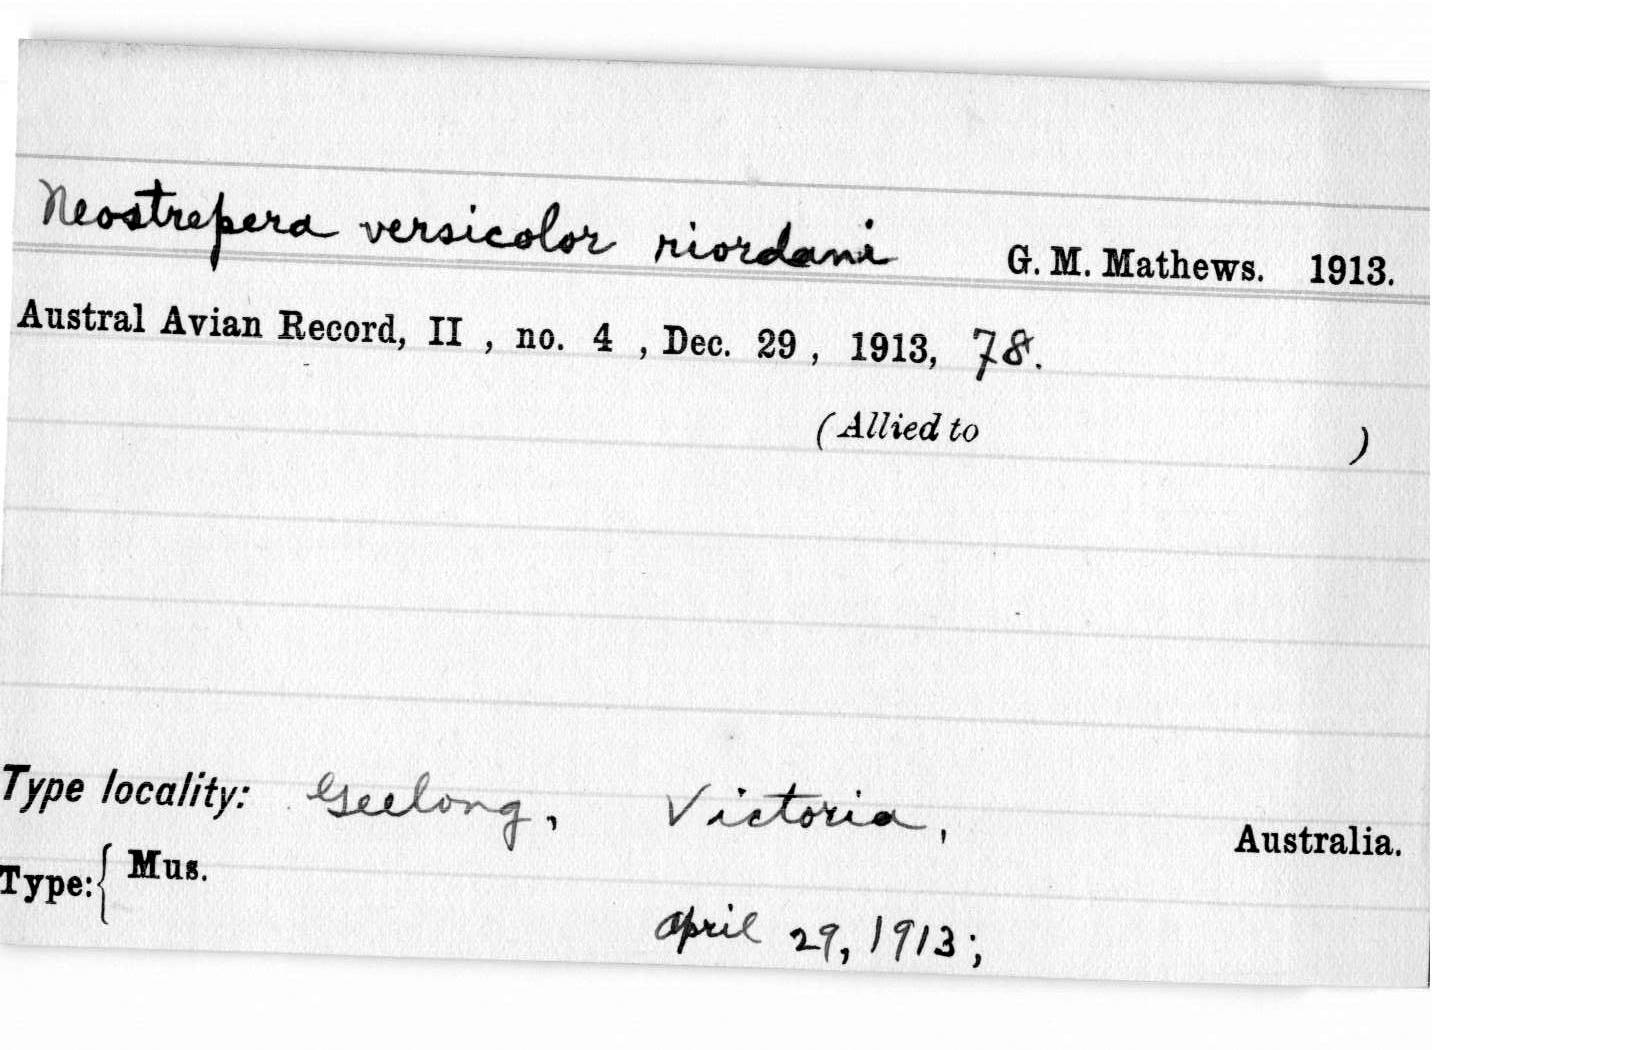 Neostrepera versicolor riordani G. M. Mathews. 1913.
Austral Avian Record, II , no. 4 , Dec. 29 , 1913, 78.
(Allied to )
Type locality: Geelong, Victoria, Australia.
Type: { Mus.
April 29, 1913;